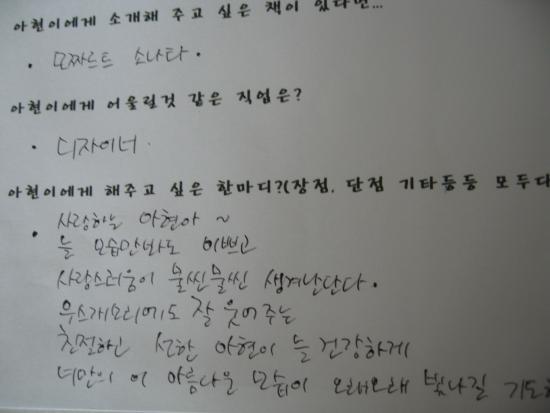 아현이에게 소개해 주고 싶은 책이 있다면...
· 모짜르트 소나타.
아현이에게 어울릴것 같은 직업은?
· 디자이너.
아현이에게 해주고 싶은 한마디?(장점, 단점 기타등등 모두다
· 사랑하는 아현아 ~
늘 모습만봐도 이쁘고
사랑스러움이 물씬물씬 생겨난단다.
우스개소리에도 잘 웃어주는
친절하고 선한 아현이 늘 건강하게
너만의 이 아름다운 모습이 오래오래 빛나길 기도